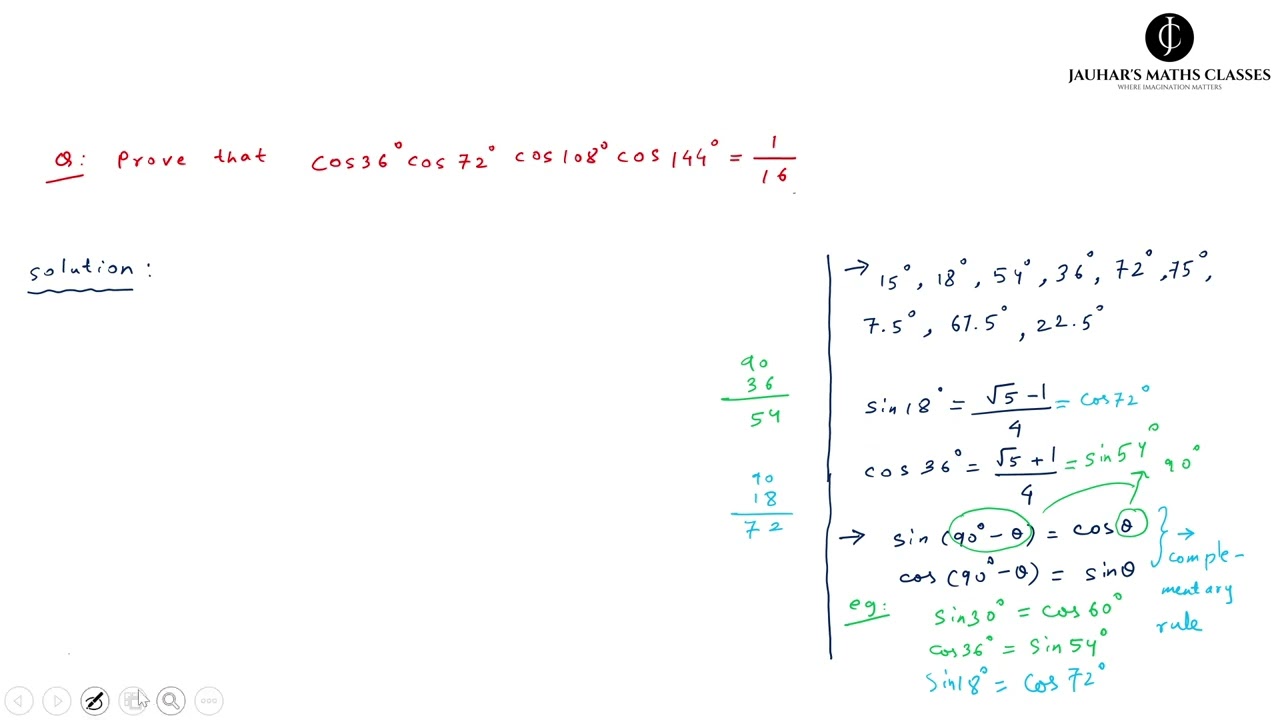 JAUHAR'S MATHS CLASSES
WHERE IMAGINATION MATTERS
Q: Prove that cos36° cos72° cos108° cos144° = 1/16
solution:
→ 15°, 18°, 54°, 36°, 72°, 75°,
7.5°, 67.5°, 22.5°
90
36
54
sin18° = (√5 - 1)/4 = cos72°
cos36° = (√5 + 1)/4 = sin54° 90°
90
18
72
→ sin(90° - θ) = cosθ
cos(90° - θ) = sinθ
} → comple-
mentary
rule
eg: sin30° = cos60°
cos36° = sin54°
sin18° = cos72°